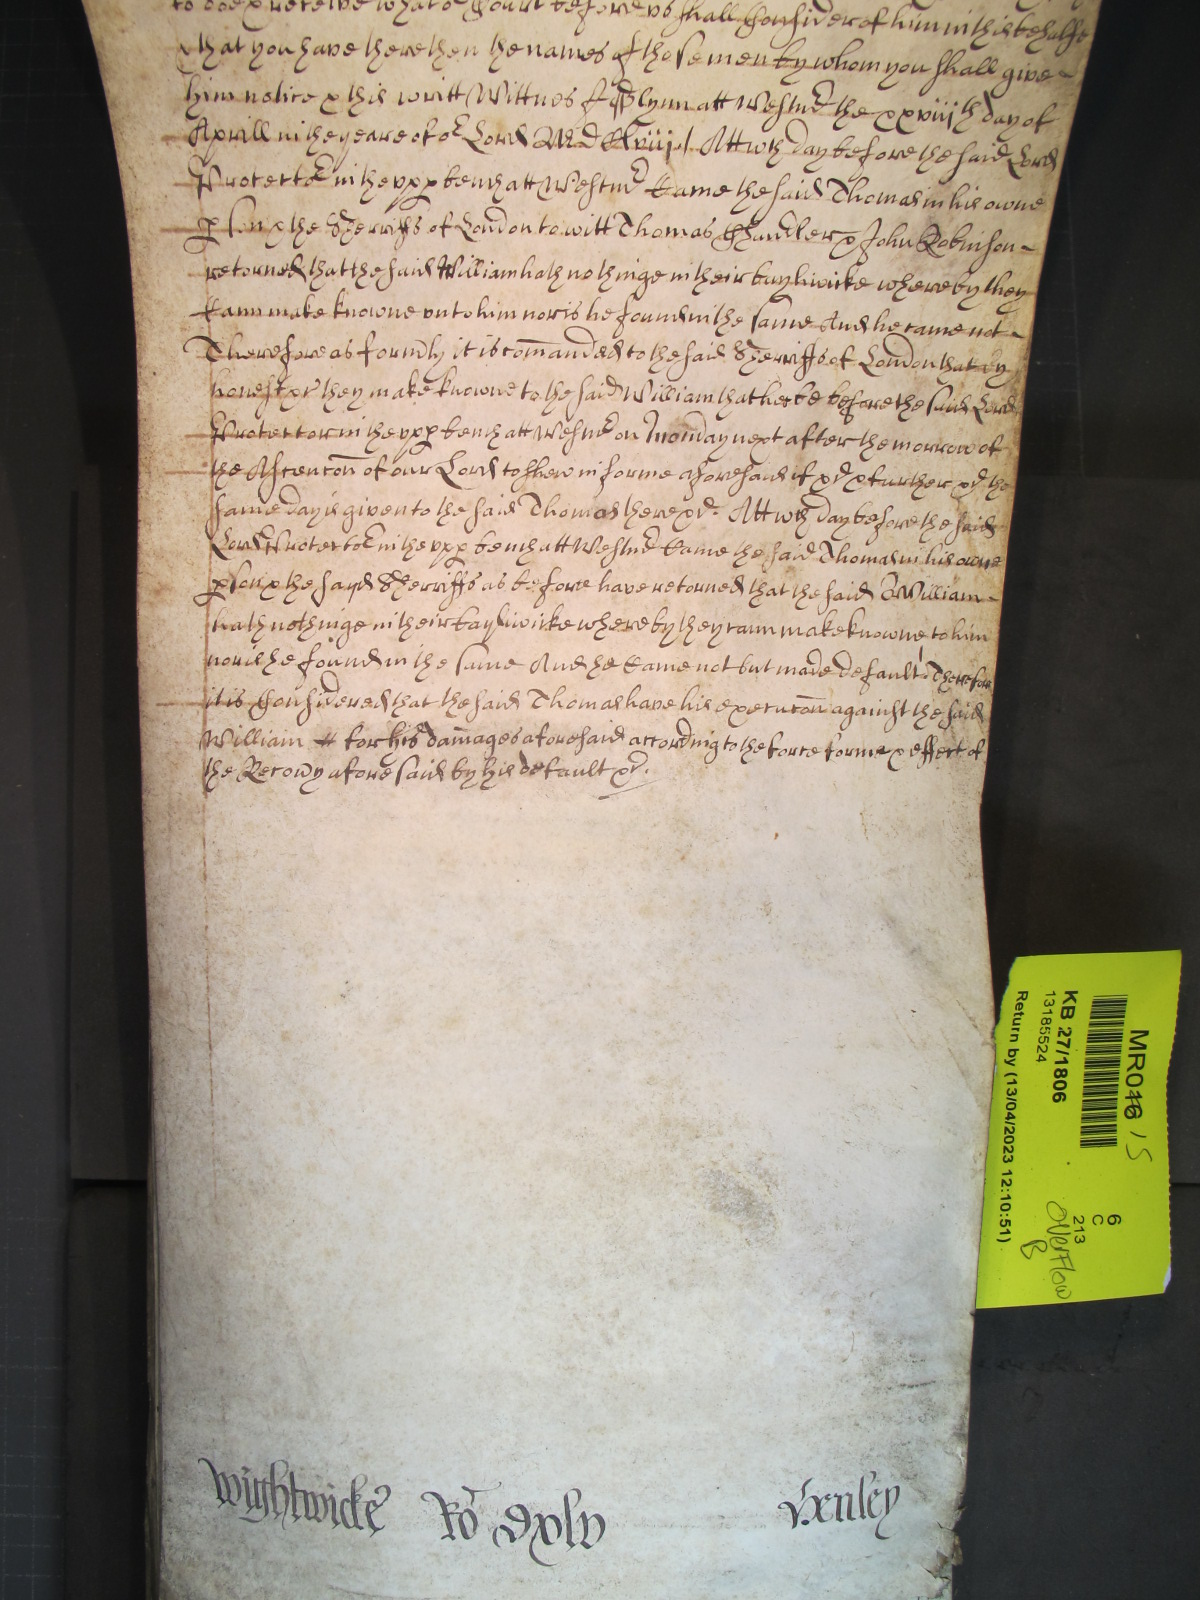 to doe & receive what oe Court before us shall Consider of him in this behalfe
that you have there then the names of those men by whom you shall give
him notice & this writt Wittnes J Glynn att Westmr the xxviijth day of
Aprill in the yeare of or Lord MDClviij / Att wch day before the said Lord
Protector in the upp bench att Westmr Came the said Thomas in his owne
pson & the Sherriffs of London to witt Thomas Chandler & John Robinson
retorned that the said William hath nothinge in their baylwicke whereby they
Cann make knowne unto him nor is he found in the same And he came not
Therefore as formly it is comanded to the said Sherriffs of London that by
honest &c they make knowne to the said William that hee be before the said Lord
Protector in the upp bench att Westmr on Monday next after the morrow of
the Ascencon of our Lord to shew in forme aforesaid if &c & further &c the
same day is given to the said Thomas there &c. Att wch day before the said
Lord Protector in the upp bench att Westmr Came the said Thomas in his owne
pson & the sayd Sherriffs as before have retorned that the said William
hath nothinge in their baylywicke whereby they cann make knowne to him
nor is he found in the same And he Came not but made default Therefore
it is Considered that the said Thomas have his execucon against the said
William for his damages aforesaid according to the force forme & effect of
the Recovy aforesaid by his default &c.
Wightwicke Ro dxlv Henley
MR046 15
KB 27/1806
13185524
Return by (13/04/2023 12:10:51)
6
C
213
overflow
B